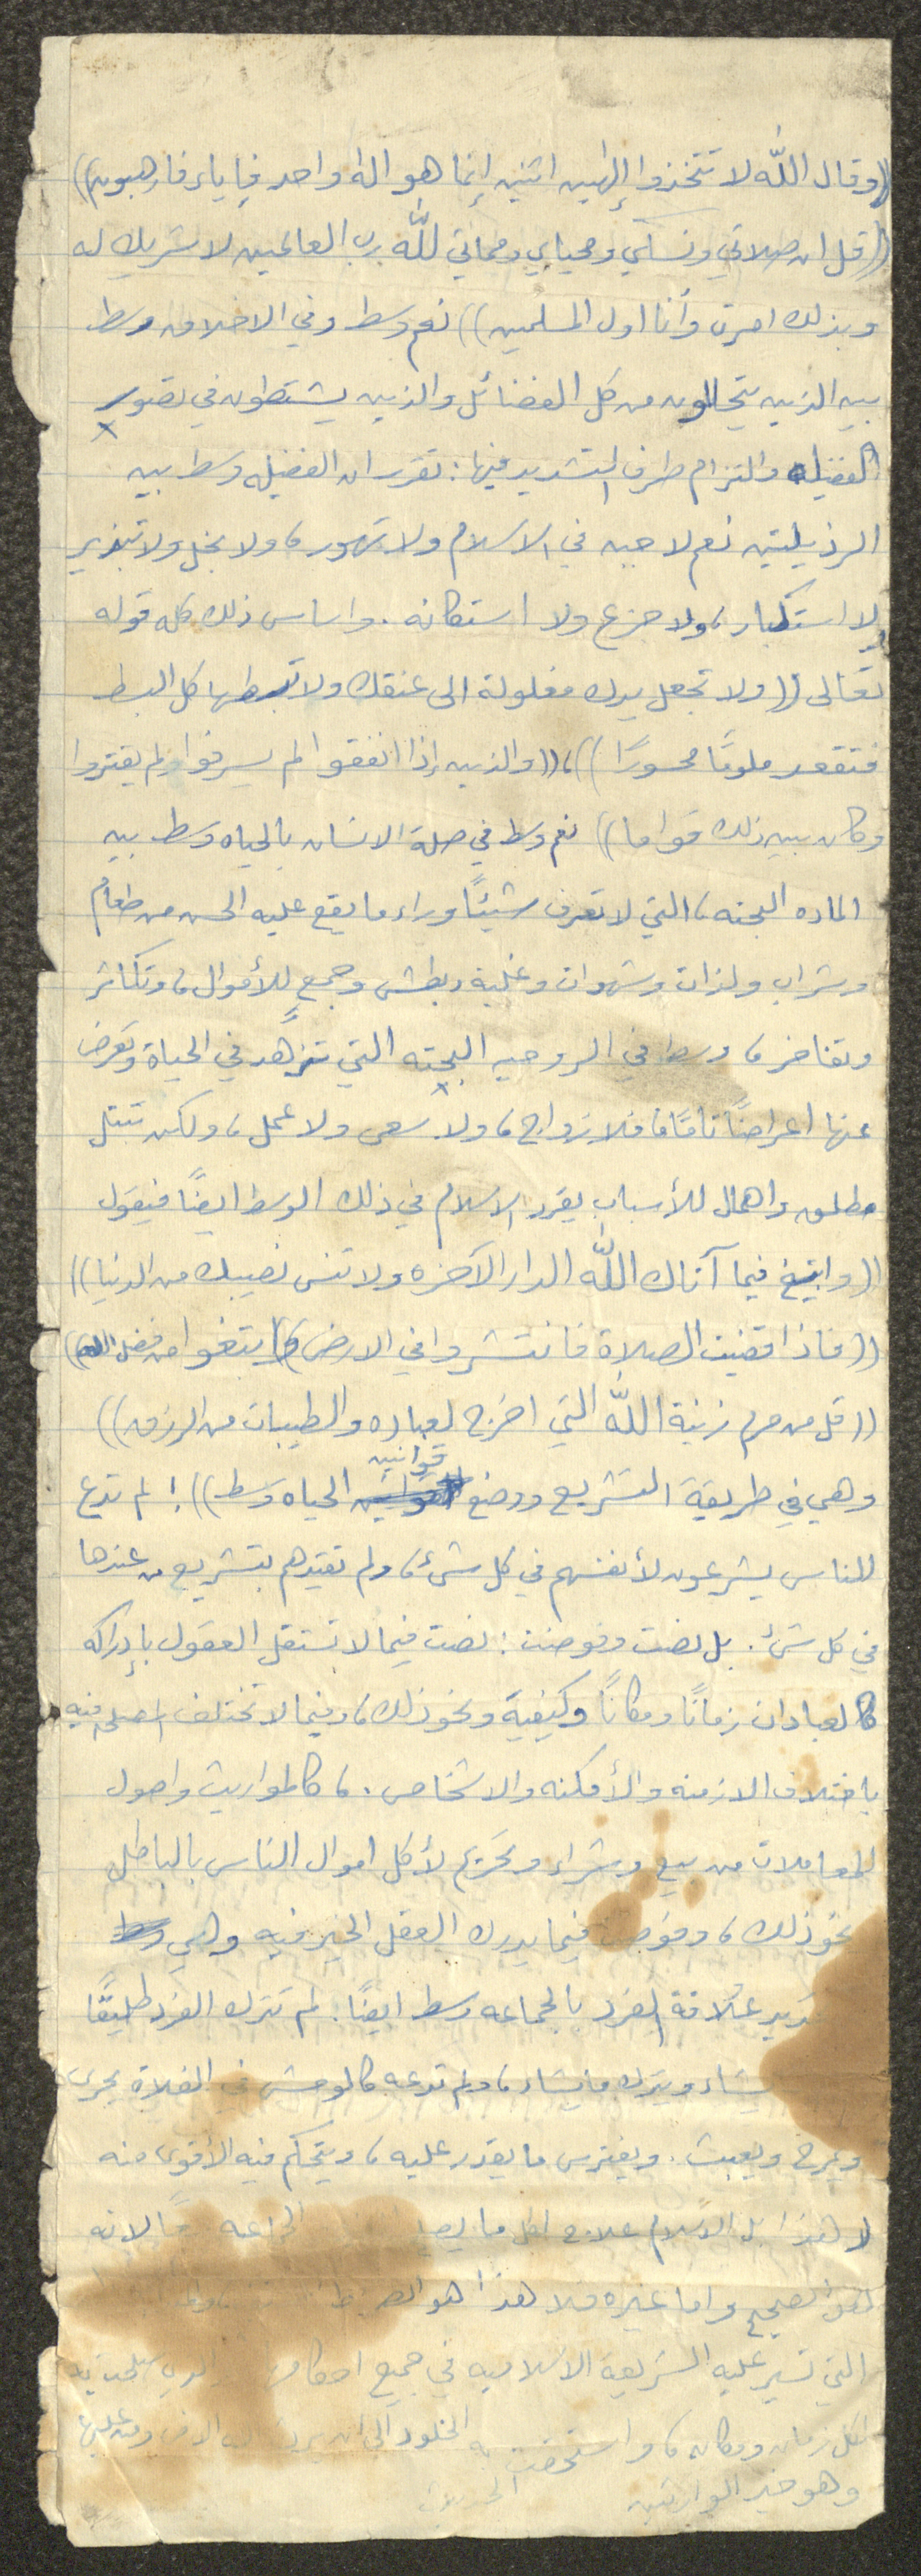 ((وقال الله لا تتخذوا إلهين اثنين إنما هو اله واحد فإياي فارهبون))
((قل ان صلاتي ونسكي ومحياي ومماتي لله رب العالمين لا شريك له
وبذلك امرت وأنا اول المسلمين)) نعم وسط وفي الاخلاق وسط
بين الذين يتحللون من كل الفضائل والذين يشتطون في تصور
الفضيله والتزام طرف التشديد فيها: تقرر ان الفضيله وسط بين
الرذيلتين نعم لا جبن في الاسلام ولا تهور، ولا بخل ولا تبذير
ولا استكبار، ولا جزع ولا استكانه. واساس ذلك كله قوله
تعالى ((ولا تجعل يدك مغلولة الى عنقك ولا تبسطها كل البسط
فتقعد ملومًا محسورًا))، ((والذين إذا انفقوا لم يسرفوا ولم يقتروا
وكان بين ذلك قواما)) نعم وسط في صلة الانسان بالحياه وسط بين
الماده البحته، التي لا تعرف شيئًا وراء ما يقع عليه الحس من طعام
وشراب ولذات وشهوات وغلبة وبطش وجمع للأموال، وتكاثر
وتفاخر، وسط في الروحيه البحته التي تزهد في الحياة وتعرض
عنها اعراضًا تامًا، فلا زواج، ولا سعى ولا عمل، ولكن تبتل
مطلق واهمال للأسباب يقرر الاسلام في ذلك الوسط ايضًا فيقول
((وابتغ فيما آتاك الله الدار الآخره ولا تنس نصيبك من الدنيا))
((فاذا قضيت الصلاة فانتشروا في الارض وابتغوا من فضل الله))
((قل من حرم زينة الله التي اخرج لعباده والطيبات من الرزق))
وهي في طريقة التشريع ووضع قوانين الحياه وسط)) ! لم تدع
للناس يشرعون لأنفسهم في كل شئ، ولم تقيدهم بتشريع من عندها
في كل شئ. بل نصت وفوضت: نصت فيما لا تستقل العقول بإدراكه
كالعبادات زمانًا ومكانًا وكيفية ونحو ذلك، وفيما لا تختلف فيه
باختلاف الازمنه والأمكنه والاشخاص.، كالمواريث واصول
المعاملات من بيع وشراء وتحريم لأكل اموال الناس بالباطل
نحو ذلك، وفوضت فيما يدرك العقل الخير فيه وهي وسط
علاقة الفرد بالجماعه وسط ايضًا. لم تترك الفرد طليقًا
يشاء ويترك ما يشاء، ولم تدعه كالوحش في الفلاة يجرى
ويمرح ويعبث. ويفترس ما يقدر عليه، ويتحكم فيه الأقوى منه
لا هذا بل الاسلام علاج لكل ما الجماعه لانه
الصحيح واما غيره فلا هذا هو
التي تسير عليه الشريعة الاسلاميه في جميع
لكل زمان ومكان، واستحقت الخلود الى ان يرث الارض ومن عليها
وهو خير الوارثين